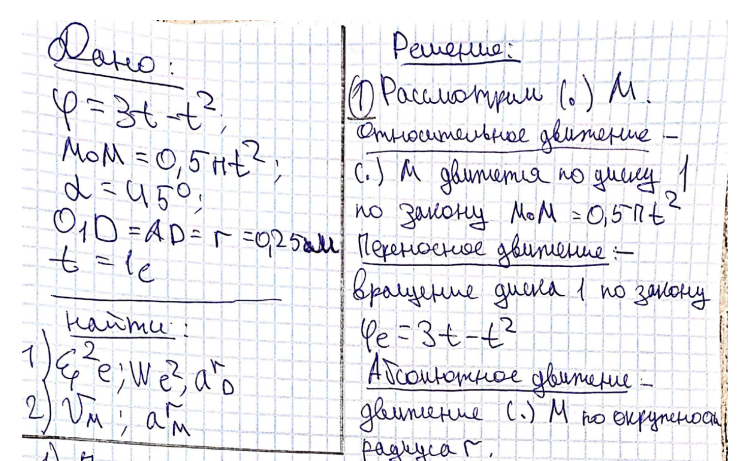 Дано:
φ = 3t - t²;
МоМ = 0,5πt²;
α = 45°;
O₁D = AD = r = 0,25м
t = 1c
найти:
1) ε²e; We²; aʳD
2) Vм; aʳм
Решение:
① Рассмотрим (.) М.
Относительное движение –
(.) М движется по диску 1
по закону МоМ = 0,5πt²
Переносное движение: –
вращение диска 1 по закону
φe = 3t - t²
Абсолютное движение –
движение (.) М по окружности
радиуса r.